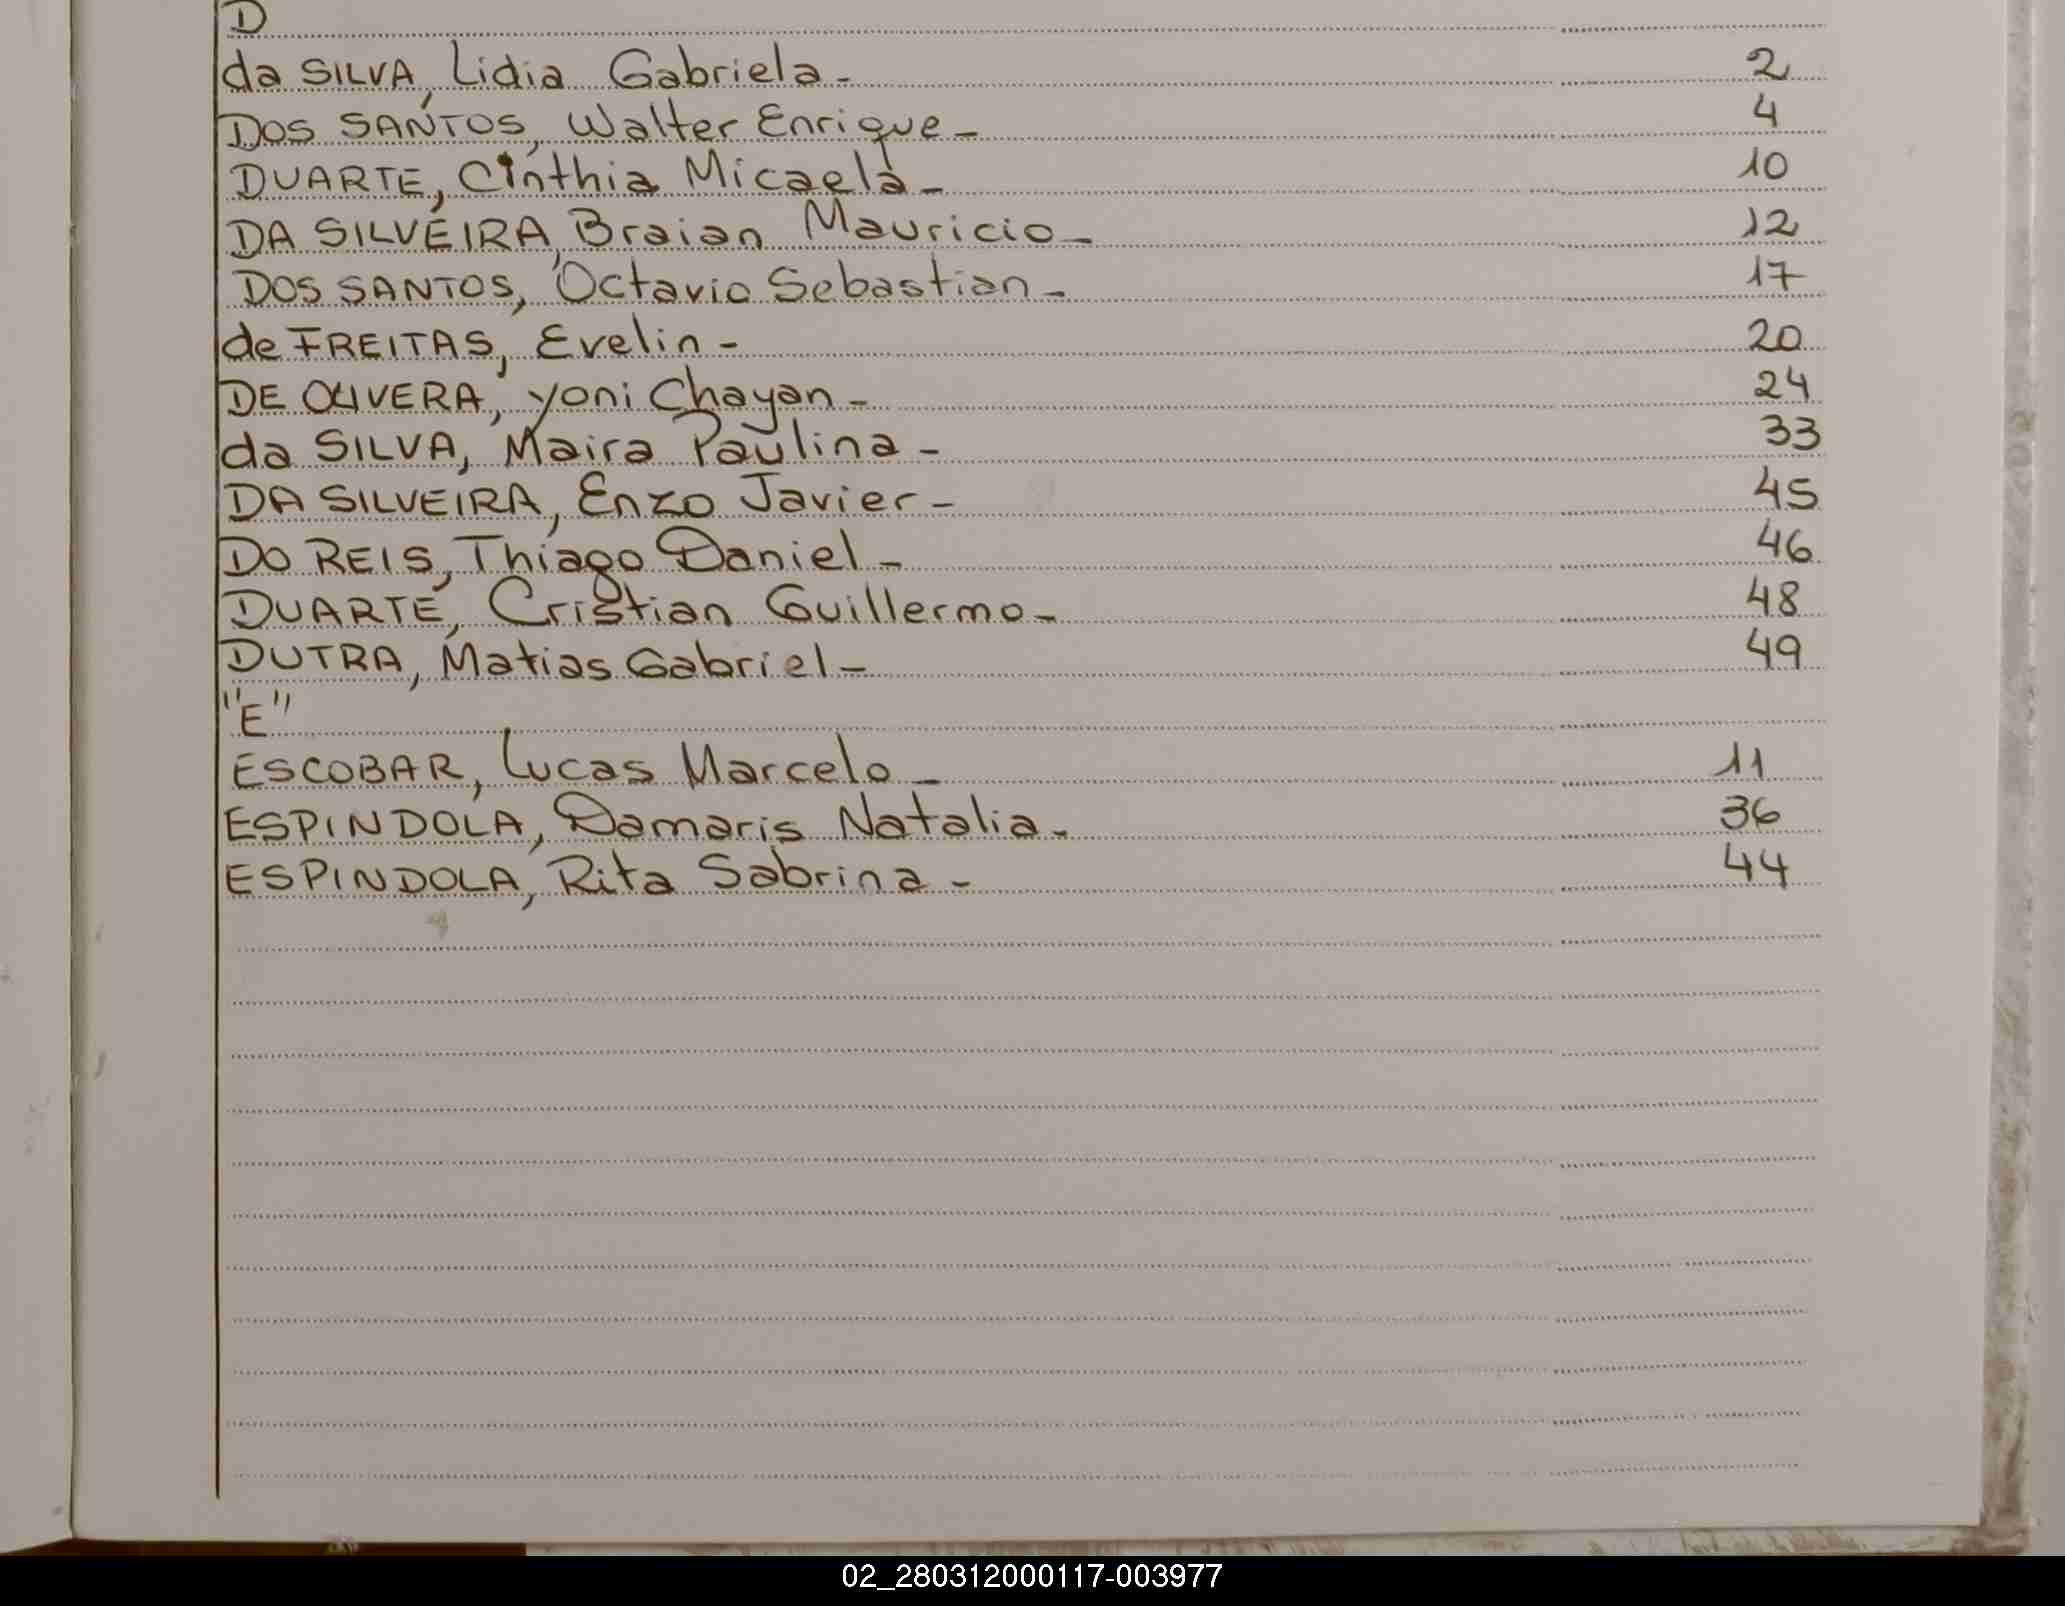 D
da SILVA, Lidia Gabriela - 2
DOS SANTOS, Walter Enrique - 4
DUARTE, Cinthia Micaela - 10
DA SILVEIRA, Braian Mauricio - 12
DOS SANTOS, Octavio Sebastian - 17
de FREITAS, Evelin - 20
DE OLIVERA, Yoni Chayan - 24
da SILVA, Maira Paulina - 33
DA SILVEIRA, Enzo Javier - 45
DO REIS, Thiago Daniel - 46
DUARTE, Cristian Guillermo - 48
DUTRA, Matias Gabriel - 49
"E"
ESCOBAR, Lucas Marcelo - 11
ESPINDOLA, Damaris Natalia - 36
ESPINDOLA, Rita Sabrina - 44
02_280312000117-003977